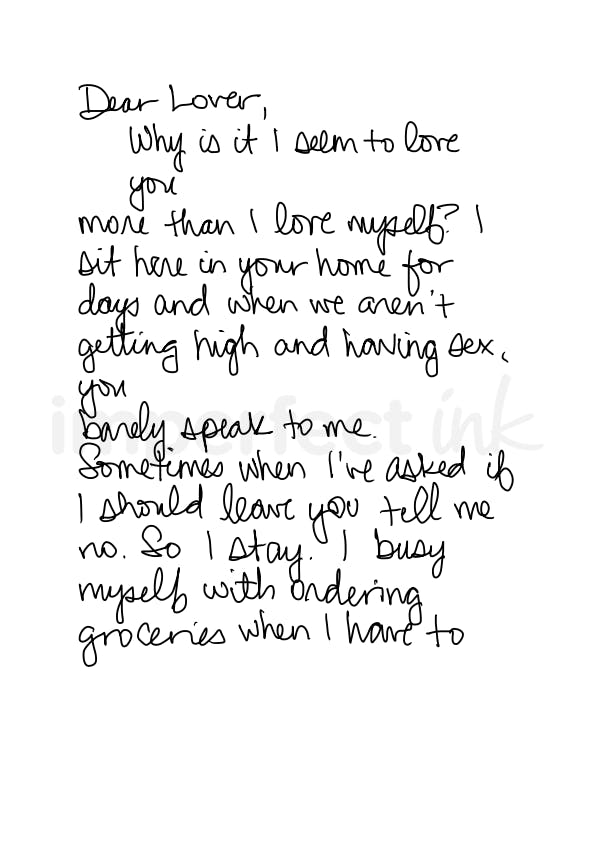 Dear Lover,
Why is it I seem to love
you
more than I love myself? I
sit here in your home for
days and when we aren't
getting high and having sex,
you
barely speak to me.
Sometimes when I've asked if
I should leave you tell me
no. So I stay. I busy
myself with ordering
groceries when I have to
imperfect ink